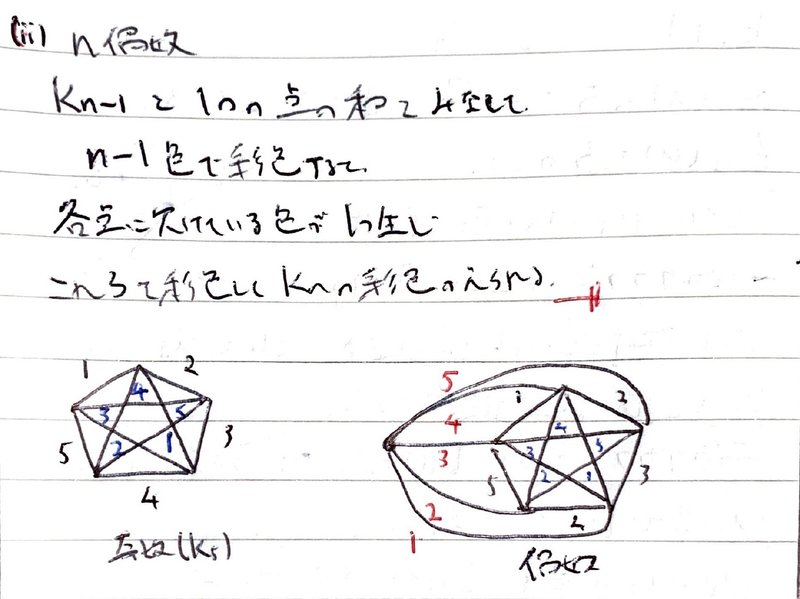 (ii) n 偶数
Kn-1 と 1つの点の和とみなして
n-1 色で彩色すると
各点に欠けている色が1つ生じ
これらで彩色して Knの彩色がえられる.
1 2
4
3 5
5 2 1 3
4
奇数(K5)
5
1 2
4 4
3 3 5
5 2 1 3
2 4
1
偶数